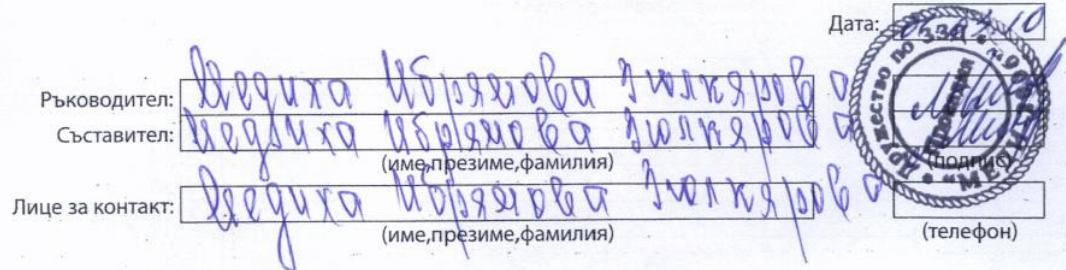 Дата:
Ръководител: Медиха Ибрямова Зюлкярова
Съставител: Медиха Ибрямова Зюлкярова
(име,презиме,фамилия)
(подпис)
Лице за контакт: Медиха Ибрямова Зюлкярова
(име,презиме,фамилия)
(телефон)
Дружество по ЗЗД